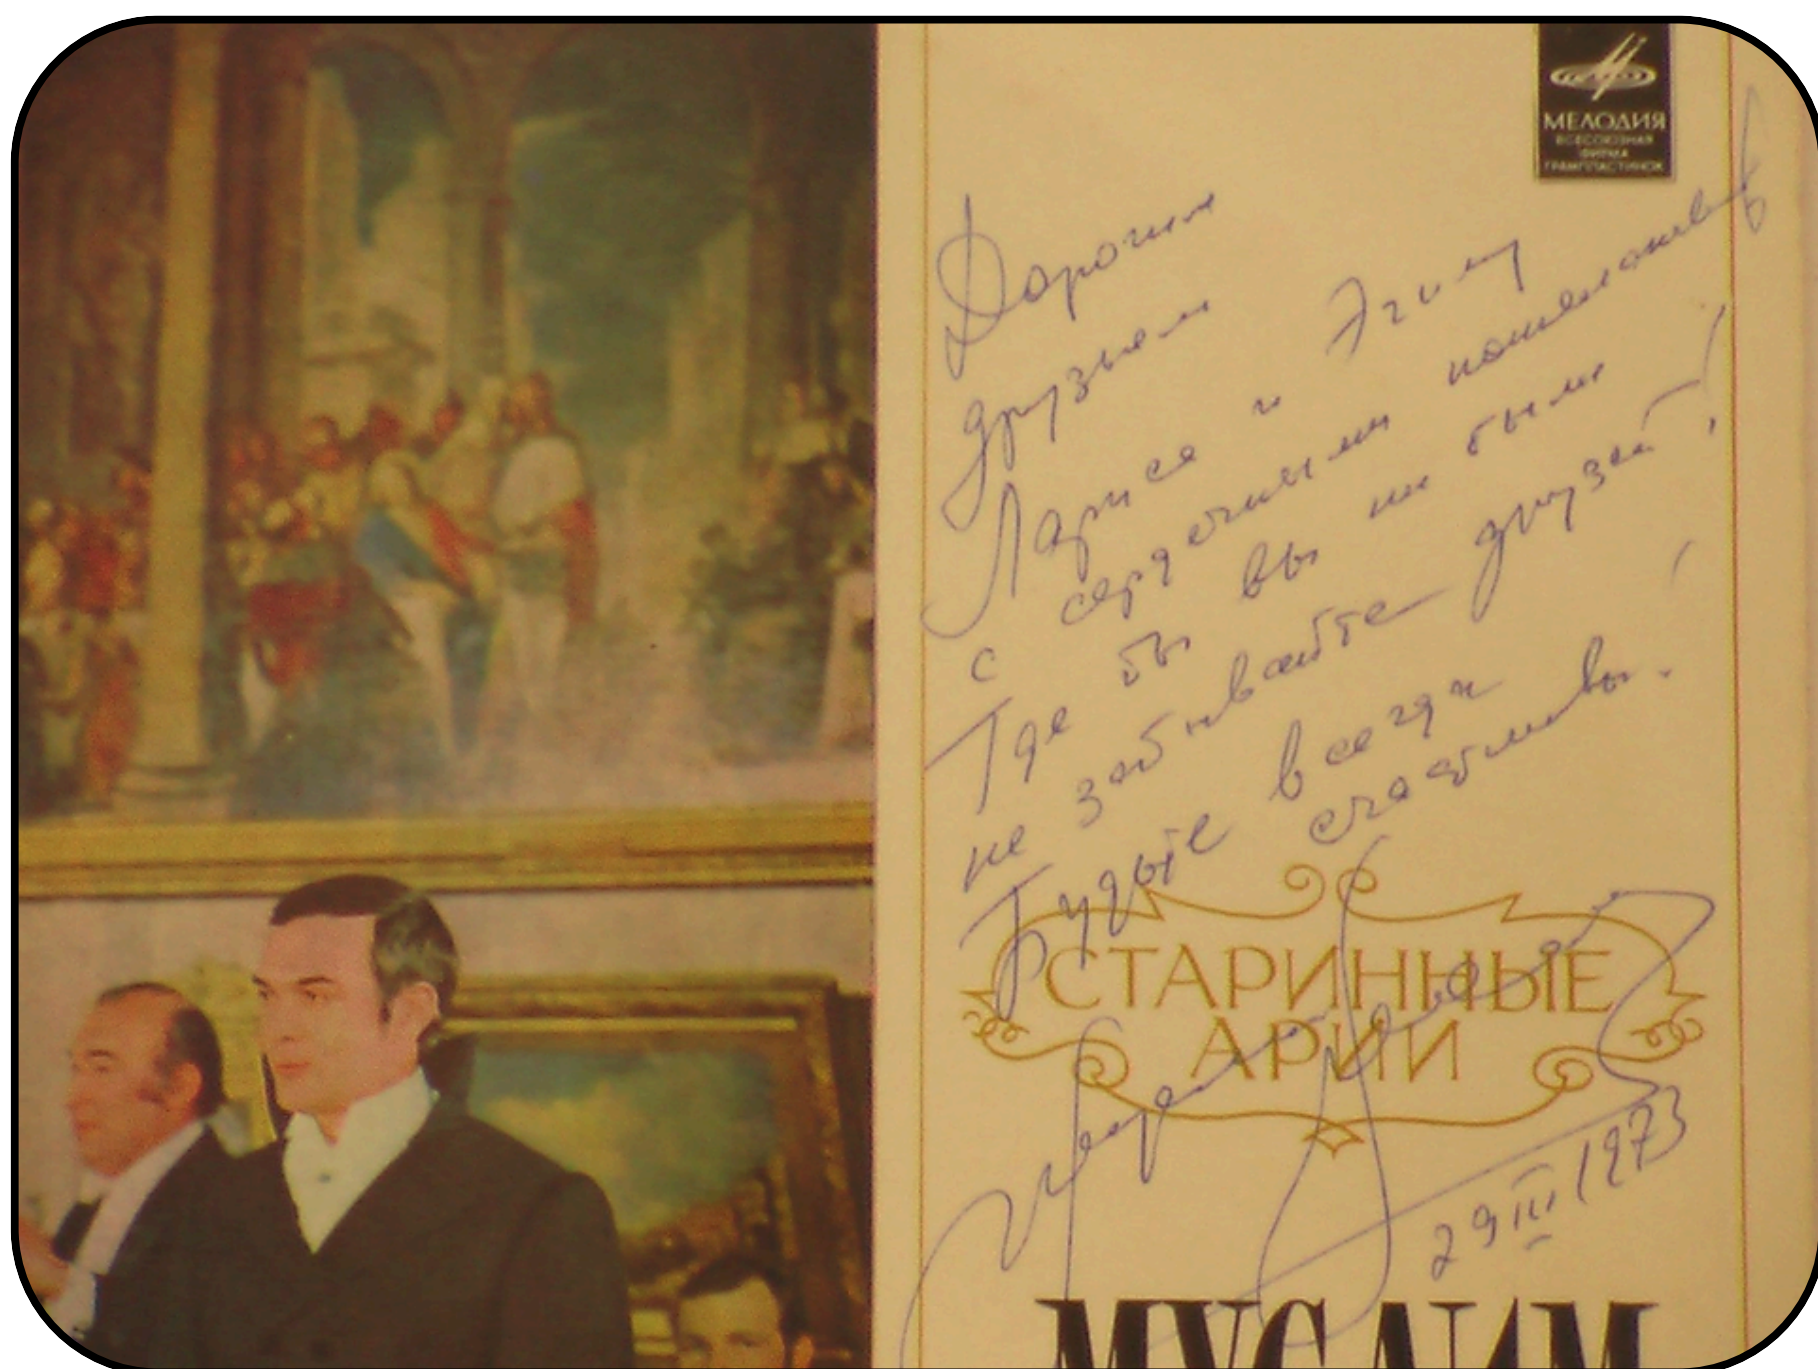 МЕЛОДИЯ
ВСЕСОЮЗНАЯ
ФИРМА
ГРАМПЛАСТИНОК
Дорогим
друзьям
Ларисе и Эгилу
с сердечными пожеланиями
Где бы вы ни были
не забывайте друзей!
Будьте всегда
счастливы.
СТАРИННЫЕ
АРИИ
29 III 1973
МУСЛИМ